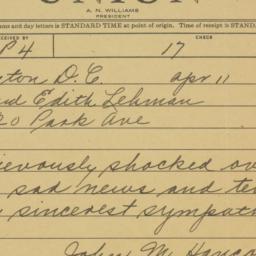 UNION
A. N. WILLIAMS
PRESIDENT
ms and day letters is STANDARD TIME at point of origin. Time of receipt is STANDA
RECEIVED BY
CHECK
P 4 17
ton D.C. apr 11
Edith Lehman
20 Park Ave
ievously shocked ov
sad news and te
sincerest sympath
John M. Hanco